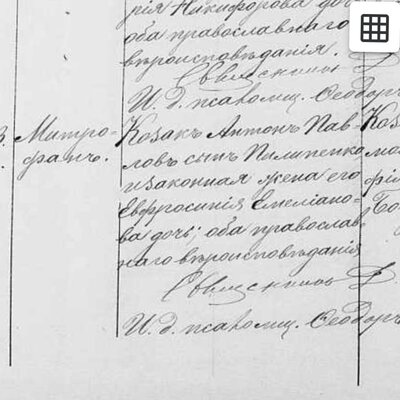 рія Никифорова доч
оба православнаго
вѣроисповѣданія.
Священникъ
И. д. псаломщ. Ѳеодоръ
Митро-
фанъ.
Козакъ Антонъ Пав-
ловъ сынъ Пилипенко
и законная жена его
Евфросинія Емеліано-
ва дочь; оба православ-
наго вѣроисповѣданія
Священникъ
И. д. псаломщ. Ѳеодоръ
Коза